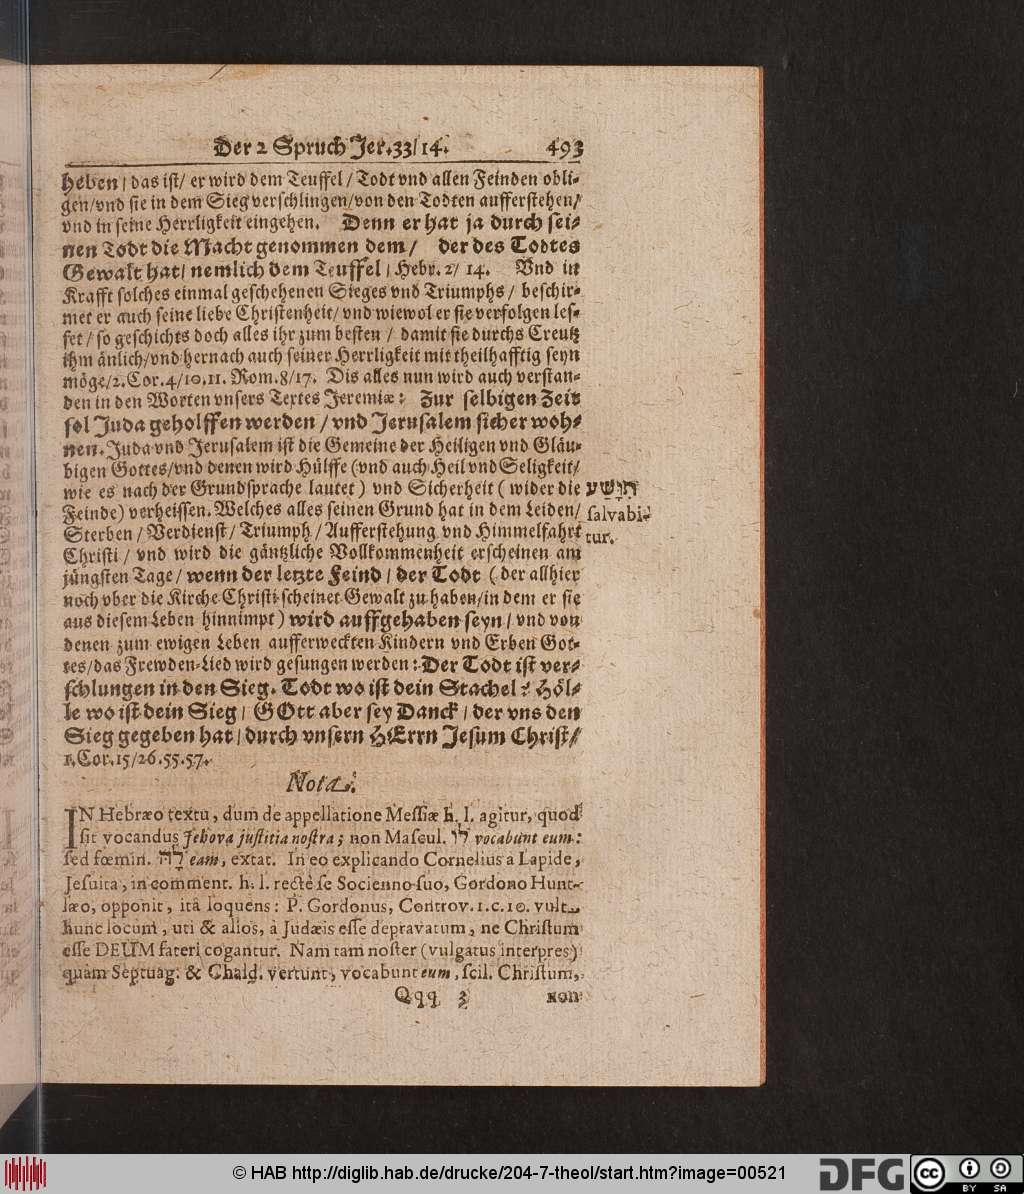 Der 2 Spruch Jer.33/14. 493
heben/ das ist/ er wird dem Teuffel/ Todt vnd allen Feinden obli-
gen/vnd sie in dem Sieg verschlingen/von den Todten aufferstehen/
vnd in seine Herrligkeit eingehen. Denn er hat ja durch sei-
nen Todt die Macht genommen dem/ der des Todtes
Gewalt hat/ nemlich dem Teuffel/ Hebr. 2/ 14. Vnd in
Krafft solches einmal geschehenen Sieges vnd Triumphs/ beschir-
met er auch seine liebe Christenheit/ vnd wiewol er sie verfolgen les-
set/ so geschichts doch alles ihr zum besten/ damit sie durchs Creutz
ihm änlich/vnd hernach auch seiner Herrligkeit mit theilhafftig seyn
möge/2.Cor.4/10.11. Rom.8/17. Dis alles nun wird auch verstan-
den in den Worten vnsers Textes Jeremiæ: Zur selbigen Zeit
sol Juda geholffen werden/ vnd Jerusalem sicher woh-
nen. Juda vnd Jerusalem ist die Gemeine der Heiligen vnd Gläu-
bigen Gottes/vnd denen wird Hülffe (vnd auch Heil vnd Seligkeit/
wie es nach der Grundsprache lautet) vnd Sicherheit (wider die
Feinde) verheissen. Welches alles seinen Grund hat in dem Leiden/
Sterben/ Verdienst/ Triumph/ Aufferstehung vnd Himmelfahrt
Christi/ vnd wird die gäntzliche Vollkommenheit erscheinen am
jüngsten Tage/ wenn der letzte Feind/ der Todt (der allhier
noch vber die Kirche Christi scheinet Gewalt zu haben/in dem er sie
aus diesem Leben hinnimpt) wird auffgehaben seyn/ vnd von
denen zum ewigen Leben aufferweckten Kindern vnd Erben Got-
tes/das Frewden-Lied wird gesungen werden: Der Todt ist ver-
schlungen in den Sieg. Todt wo ist dein Stachel? Höl-
le wo ist dein Sieg/ GOtt aber sey Danck/ der vns den
Sieg gegeben hat/ durch vnsern HErrn Jesum Christ/
1.Cor.15/26.55.57.
תושע
salvabi-
tur.
Nota.
IN Hebræo textu, dum de appellatione Messiæ h. l. agitur, quod
sit vocandus Jehova justitia nostra; non Mascul. לו vocabunt eum:
sed fœmin. לה eam, extat. In eo explicando Cornelius a Lapide,
Jesuita, in comment. h. l. rectè se Socienno suo, Gordono Hunt-
læo, opponit, itâ loquens: P. Gordonus, Controv. 1. c. 10. vult
hunc locum, uti & alios, à Judæis esse depravatum, ne Christum
esse DEUM fateri cogantur. Nam tam noster (vulgatus interpres)
quàm Septuag. & Chald. vertunt, vocabunt eum, scil. Christum,
Qqq 3 non
© HAB http://diglib.hab.de/drucke/204-7-theol/start.htm?image=00521
DFG
cc BY SA